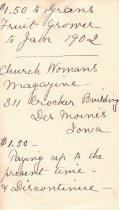 $1.50 to Greens
Fruit Grower
to Jan 1902
Church Womans
Magazine
311 Crocker Building
Des Moines
Iowa
$1.50 —
Paying up to the
present time -
& Discontinue -